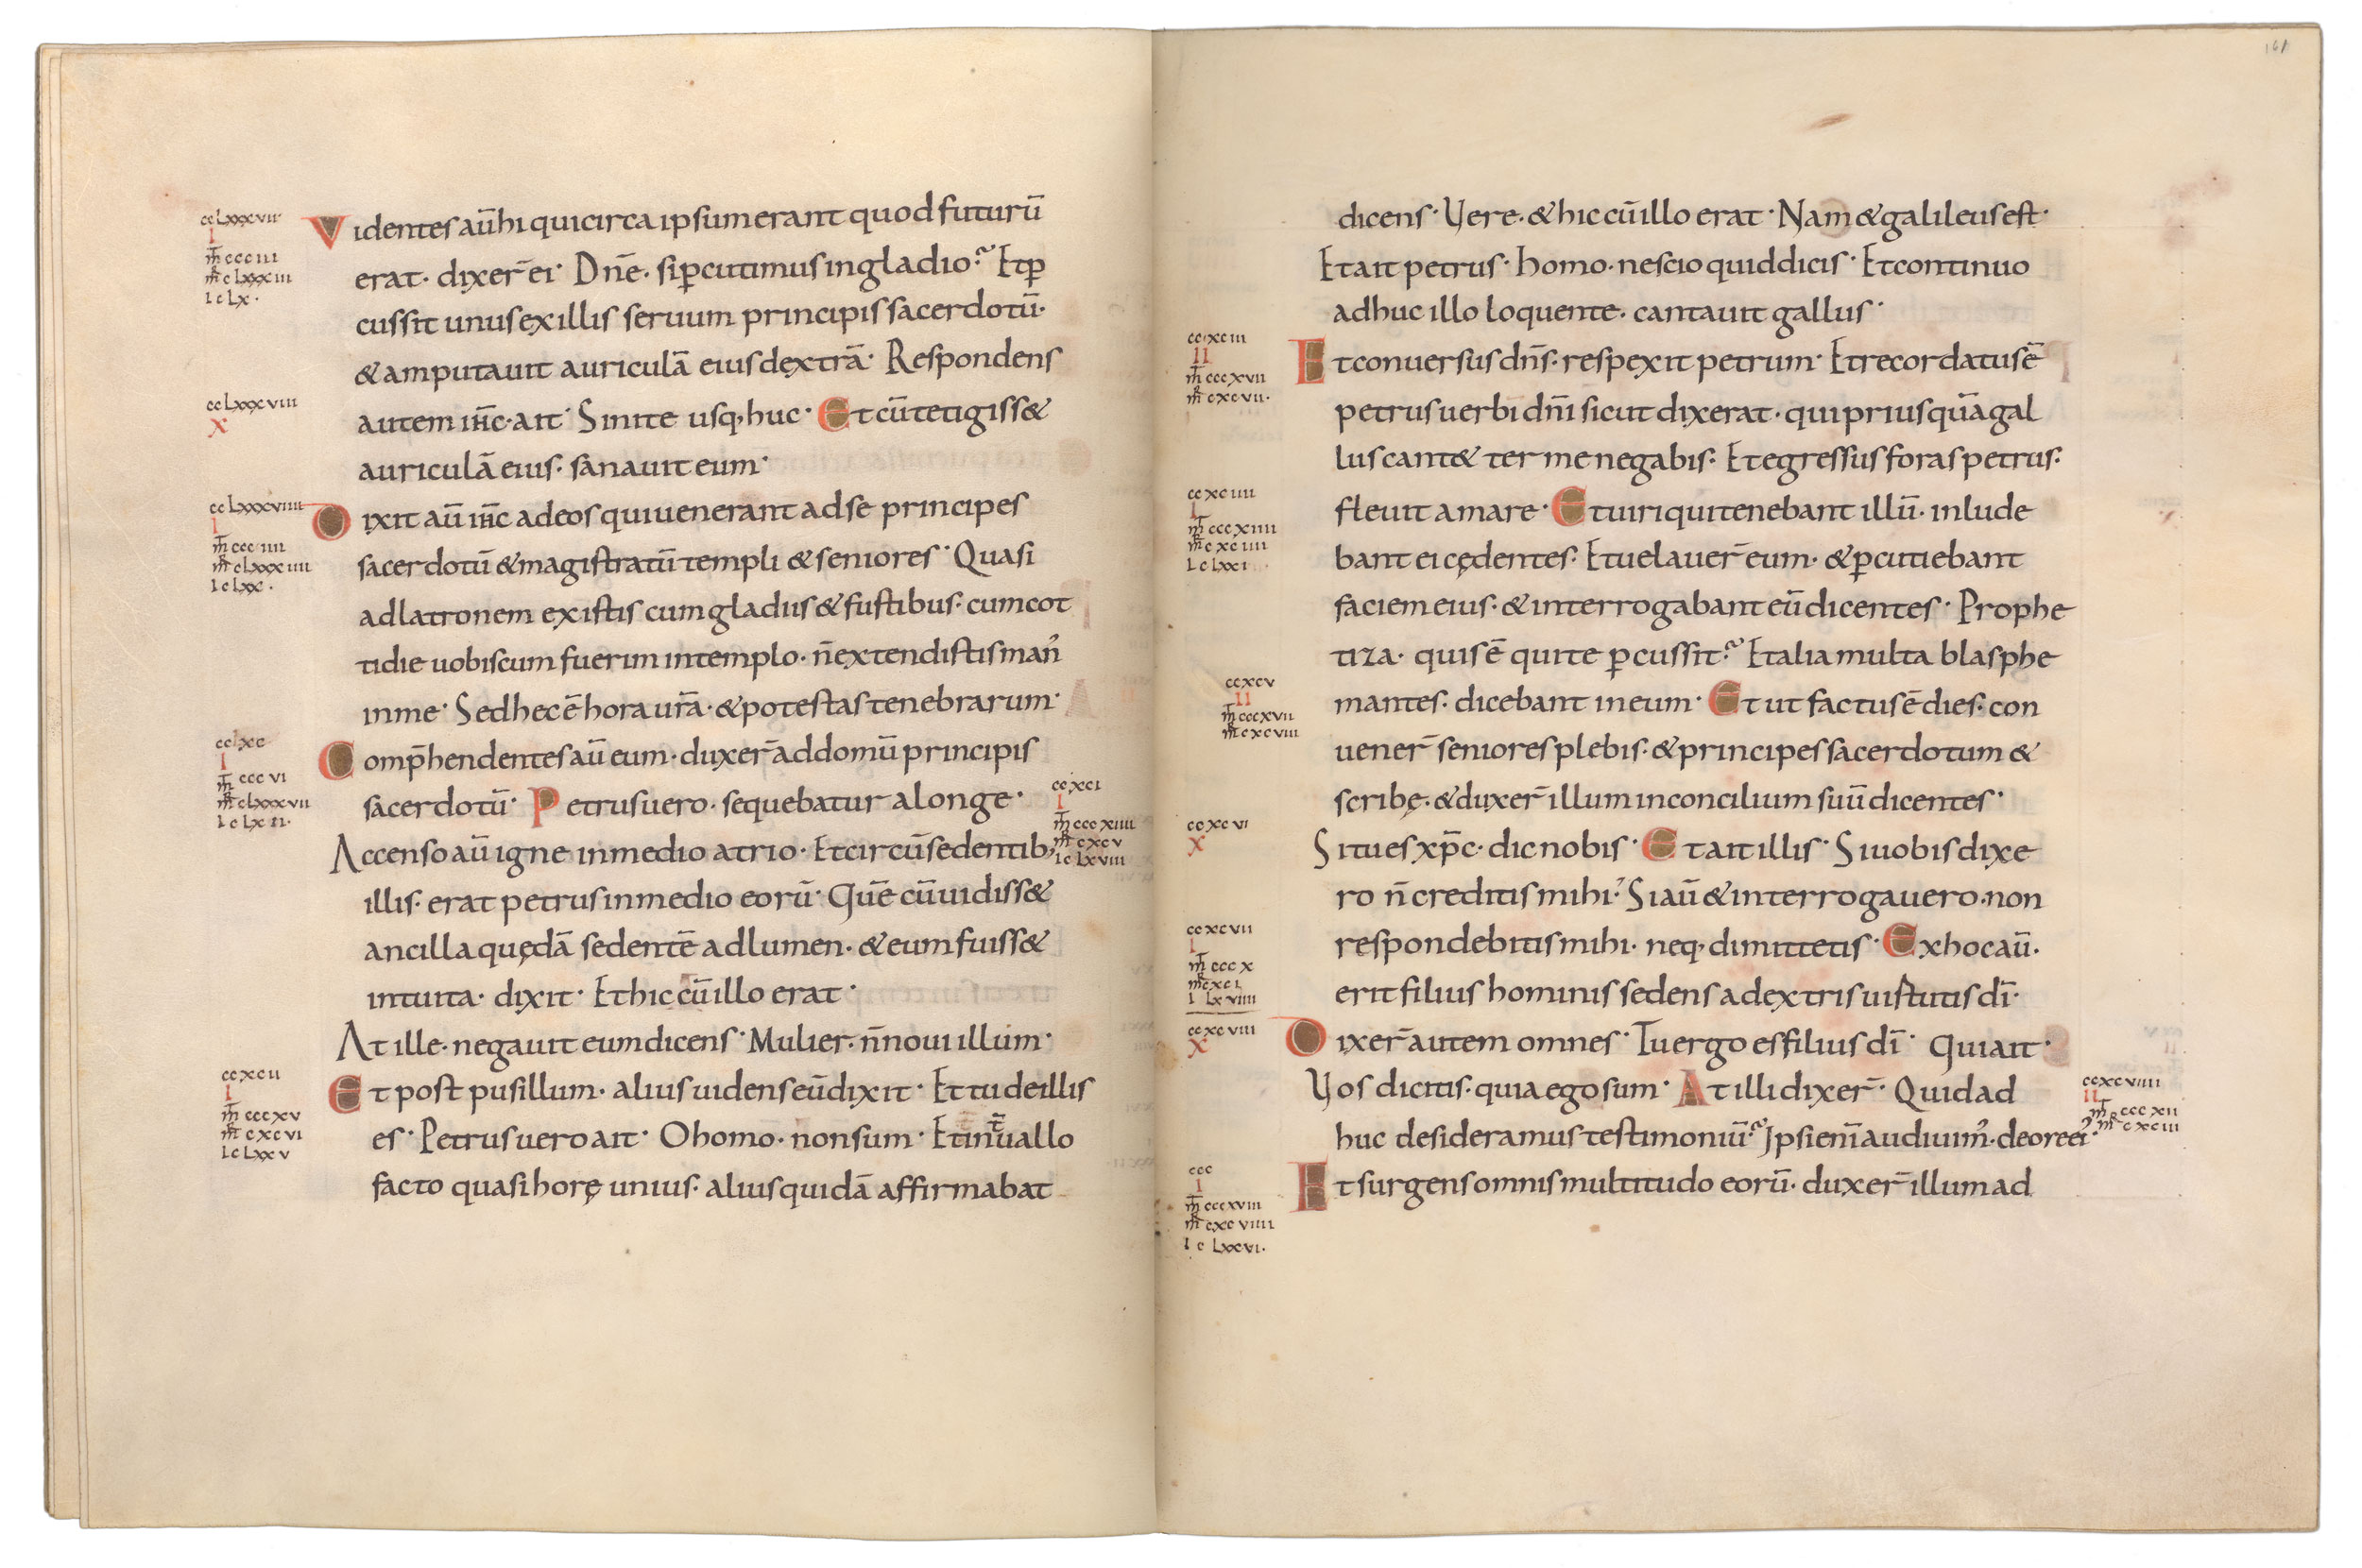 cclxxxvii
I
mt ccciii
mr clxxxiii
io clx.
Videntes aū hi qui circa ipsum erant quod futurū
erat· dixer̄ ei· Dn̄e· si ꝑcutimus in gladio? Et ꝑ
cussit unus ex illis seruum principis sacerdotū·
& amputauit auriculā eius dextrā· Respondens
cclxxxviii
X
autem ih̄c· ait· Sinite usq; huc· Et cū tetigiss&
auriculā eius· sanauit eum·
cclxxxviiii
I
mt ccciiii
mr clxxxiiii
io clxx.
Dixit aū ih̄c ad eos qui uenerant ad se principes
sacerdotū & magistratū templi & seniores· Quasi
ad latronem existis cum gladiis & fustibus· cum cot
tidie uobiscum fuerim in templo· n̄ extendistis man᷒
in me· Sed hec ē hora ur̄a· & potestas tenebrarum·
ccxc
I
mt cccvi
mr clxxxvii
Comp̄hendentes aū eum· duxer̄ ad domū principis
sacerdotū· Petrus uero· sequebatur a longe·
ccxci
I
mt cccxiiii
mr cxcv
io clxviii
Accenso aū igne in medio atrio· Et circū sedentib;
illis· erat petrus in medio eorū· Quē cū uidiss&
ancilla quędā sedentē ad lumen· & eum fuiss&
intuita· dixit· Et hic cū illo erat·
At ille· negauit eum dicens· Mulier· n̄ noui illum·
ccxcii
I
mt cccxv
mr cxcvi
io clxxv
Et post pusillum· alius uidens eū dixit· Et tu de illis
es· Petrus uero ait· O homo· non sum· Et interuallo
facto quasi horę unius· alius quidā affirmabat
161
dicens· Vere· & hic cū illo erat· Nam & galileus est·
Et ait petrus· homo· nescio quid dicis· Et continuo
adhuc illo loquente· cantauit gallus·
ccxciii
II
mt cccxvii
mr cxcvii·
Et conuersus dn̄s· respexit petrum· Et recordatus ē
petrus uerbi dn̄i sicut dixerat· qui prius quā gal
lus cant& ter me negabis· Et egressus foras petrus·
ccxciiii
I
mt cccxiiii
mr cxciiii
io clxxi
fleuit amare· Et uiri qui tenebant illū· inlude
bant ei cędentes· Et uelauer̄ eum· & ꝑcutiebant
faciem eius· & interrogabant eū dicentes· Prophe
tiza· quis ē qui te ꝑcussit? Et alia multa blasphe
ccxcv
II
mt cccxvii
mr cxcviii
mantes· dicebant in eum· Et ut factus ē dies· con
uener̄ seniores plebis· & principes sacerdotum &
scribę· & duxer̄ illum in concilium suū dicentes·
ccxcvi
X
Si tu es xp̄c· dic nobis· Et ait illis· Si uobis dixe
ro n̄ creditis mihi· Si aū & interrogauero· non
ccxcvii
I
mt cccx
mr cxci
i lxviiii
respondebitis mihi· neq; dimittetis· Ex hoc aū·
erit filius hominis sedens a dextris uirtutis dī·
ccxcviii
X
Dixer̄ autem omnes· Tu ergo es filius dī· Qui ait·
Vos dicitis· quia ego sum· At illi dixer̄· Quid ad
ccxcviiii
II
mt cccxii
mr cxciii
huc desideramus testimoniū? Ipsi enī audiuim᷒· de ore ei᷒·
ccc
I
mt cccxviii
mr cxcviiii
io clxxvi.
Et surgens omnis multitudo eorū· duxer̄ illum ad